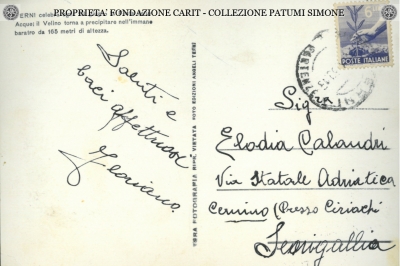 PROPRIETA' FONDAZIONE CARIT - COLLEZIONE PATUMI SIMONE
TERNI
Acque: il Velino torna a precipitare nell'immane
baratro da 165 metri di altezza.
Saluti e
baci affettuosi
Floriano.
VERA FOTOGRAFIA RIPR. VIETATA FOTO EDIZIONI ANGELI TERNI
6
POSTE ITALIANE
PARTENZE
Sig.ra
Elodia Calandri
Via Statale Adriatica
(Presso Ciriachi
Senigallia